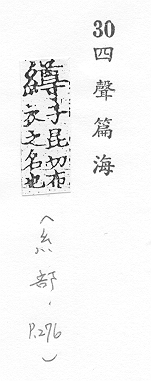 30四聲篇海
繜子昆切布
衣之名也
(糸部,
P.276)